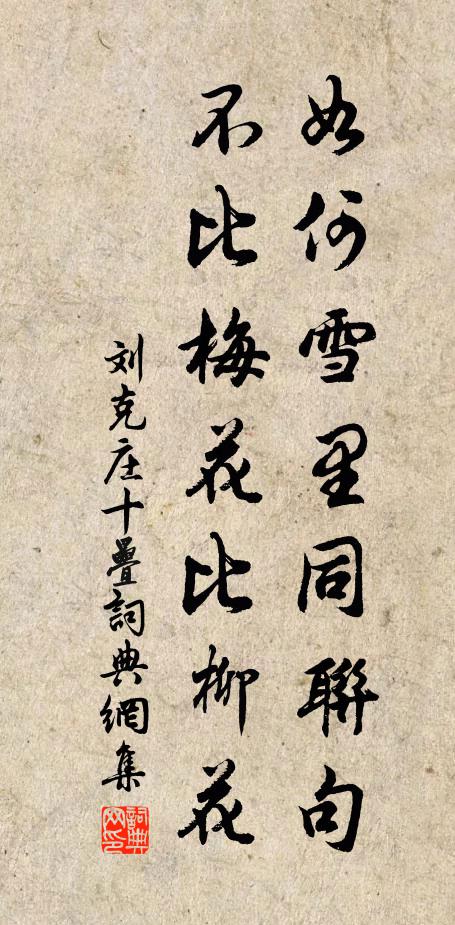 如何雪里同聯句
不比梅花比柳花
刘克庄十疊詞典網集
詞典網印